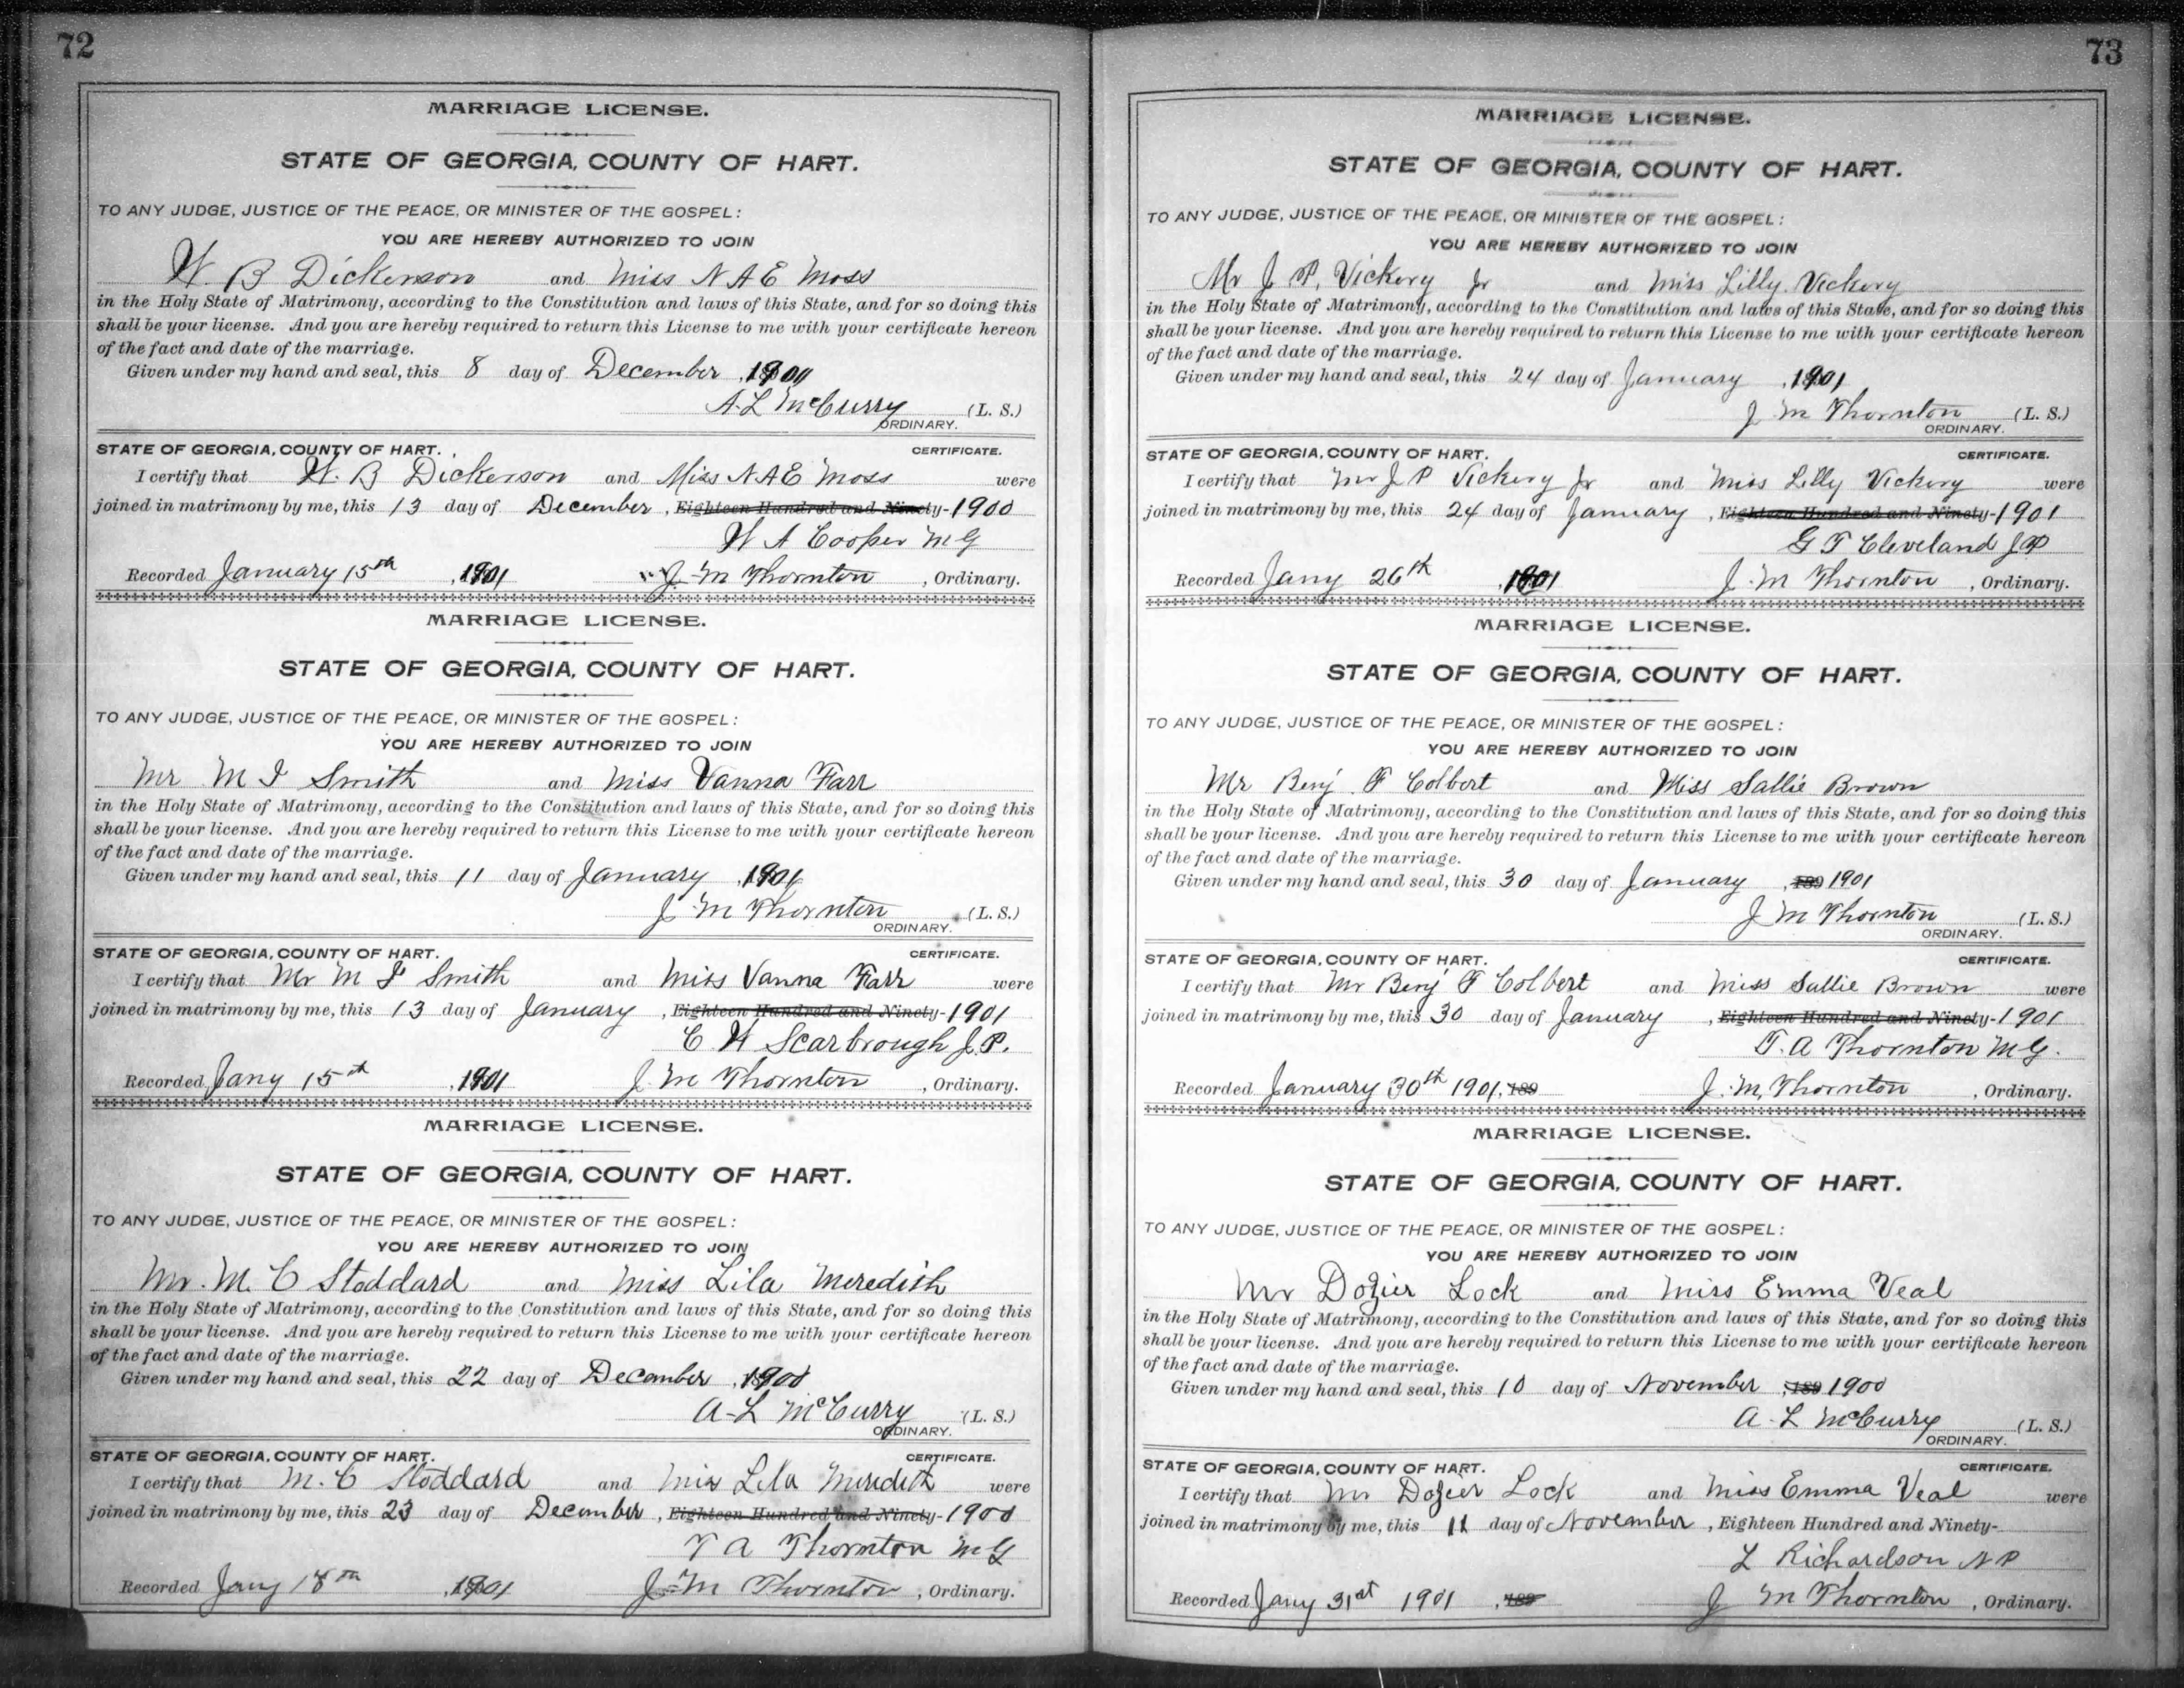 72
MARRIAGE LICENSE.
STATE OF GEORGIA, COUNTY OF HART.
TO ANY JUDGE, JUSTICE OF THE PEACE, OR MINISTER OF THE GOSPEL:
YOU ARE HEREBY AUTHORIZED TO JOIN
W. B Dickerson and Miss N A E Moss
in the Holy State of Matrimony, according to the Constitution and laws of this State, and for so doing this
shall be your license. And you are hereby required to return this License to me with your certificate hereon
of the fact and date of the marriage.
Given under my hand and seal, this 8 day of December, 1900
A. L McCurry (L. S.)
ORDINARY.
STATE OF GEORGIA, COUNTY OF HART. CERTIFICATE.
I certify that W. B Dickerson and Miss N A E Moss were
joined in matrimony by me, this 13 day of December, Eighteen Hundred and Ninety-1900
W A Cooper M G
Recorded January 15th, 1901 J. M Thornton, Ordinary.
MARRIAGE LICENSE.
STATE OF GEORGIA, COUNTY OF HART.
TO ANY JUDGE, JUSTICE OF THE PEACE, OR MINISTER OF THE GOSPEL:
YOU ARE HEREBY AUTHORIZED TO JOIN
Mr M I Smith and Miss Vanna Farr
in the Holy State of Matrimony, according to the Constitution and laws of this State, and for so doing this
shall be your license. And you are hereby required to return this License to me with your certificate hereon
of the fact and date of the marriage.
Given under my hand and seal, this 11 day of January, 1901
J. M Thornton (L. S.)
ORDINARY.
STATE OF GEORGIA, COUNTY OF HART. CERTIFICATE.
I certify that Mr M Smith and Miss Vanna Farr were
joined in matrimony by me, this 13 day of January, Eighteen Hundred and Ninety-1901
C. H Scarbrough J. P.
Recorded Jany 15th, 1901 J. M Thornton, Ordinary.
MARRIAGE LICENSE.
STATE OF GEORGIA, COUNTY OF HART.
TO ANY JUDGE, JUSTICE OF THE PEACE, OR MINISTER OF THE GOSPEL:
YOU ARE HEREBY AUTHORIZED TO JOIN
Mr. M. C Stoddard and Miss Lila Meredith
in the Holy State of Matrimony, according to the Constitution and laws of this State, and for so doing this
shall be your license. And you are hereby required to return this License to me with your certificate hereon
of the fact and date of the marriage.
Given under my hand and seal, this 22 day of December, 1900
A-L McCurry (L. S.)
ORDINARY.
STATE OF GEORGIA, COUNTY OF HART. CERTIFICATE.
I certify that M. C Stoddard and Miss Lila Meredith were
joined in matrimony by me, this 23 day of December, Eighteen Hundred and Ninety-1900
T A Thornton M G
Recorded Jany 18th, 1901 J. M Thornton, Ordinary.
73
MARRIAGE LICENSE.
STATE OF GEORGIA, COUNTY OF HART.
TO ANY JUDGE, JUSTICE OF THE PEACE, OR MINISTER OF THE GOSPEL:
YOU ARE HEREBY AUTHORIZED TO JOIN
Mr J P. Vickery Jr and Miss Lilly Vickery
in the Holy State of Matrimony, according to the Constitution and laws of this State, and for so doing this
shall be your license. And you are hereby required to return this License to me with your certificate hereon
of the fact and date of the marriage.
Given under my hand and seal, this 24 day of January, 1901
J. M Thornton (L. S.)
ORDINARY.
STATE OF GEORGIA, COUNTY OF HART. CERTIFICATE.
I certify that Mr J P Vickery Jr and Miss Lilly Vickery were
joined in matrimony by me, this 24 day of January, Eighteen Hundred and Ninety-1901
G T Cleveland J P
Recorded Jany 26th, 1901 J. M Thornton, Ordinary.
MARRIAGE LICENSE.
STATE OF GEORGIA, COUNTY OF HART.
TO ANY JUDGE, JUSTICE OF THE PEACE, OR MINISTER OF THE GOSPEL:
YOU ARE HEREBY AUTHORIZED TO JOIN
Mr Benj. F Colbert and Miss Sallie Brown
in the Holy State of Matrimony, according to the Constitution and laws of this State, and for so doing this
shall be your license. And you are hereby required to return this License to me with your certificate hereon
of the fact and date of the marriage.
Given under my hand and seal, this 30 day of January, 189 1901
J M Thornton (L. S.)
ORDINARY.
STATE OF GEORGIA, COUNTY OF HART. CERTIFICATE.
I certify that Mr Benj F Colbert and Miss Sallie Brown were
joined in matrimony by me, this 30 day of January, Eighteen Hundred and Ninety-1901
T. A Thornton M G.
Recorded January 30th 1901, 189 J. M, Thornton, Ordinary.
MARRIAGE LICENSE.
STATE OF GEORGIA, COUNTY OF HART.
TO ANY JUDGE, JUSTICE OF THE PEACE, OR MINISTER OF THE GOSPEL:
YOU ARE HEREBY AUTHORIZED TO JOIN
Mr Dozier Lock and Miss Emma Veal
in the Holy State of Matrimony, according to the Constitution and laws of this State, and for so doing this
shall be your license. And you are hereby required to return this License to me with your certificate hereon
of the fact and date of the marriage.
Given under my hand and seal, this 10 day of November, 189 1900
A. L McCurry (L. S.)
ORDINARY.
STATE OF GEORGIA, COUNTY OF HART. CERTIFICATE.
I certify that Mr Dozier Lock and Miss Emma Veal were
joined in matrimony by me, this 11 day of November, Eighteen Hundred and Ninety-
L Richardson N P
Recorded Jany 31st 1901, 189 J M Thornton, Ordinary.